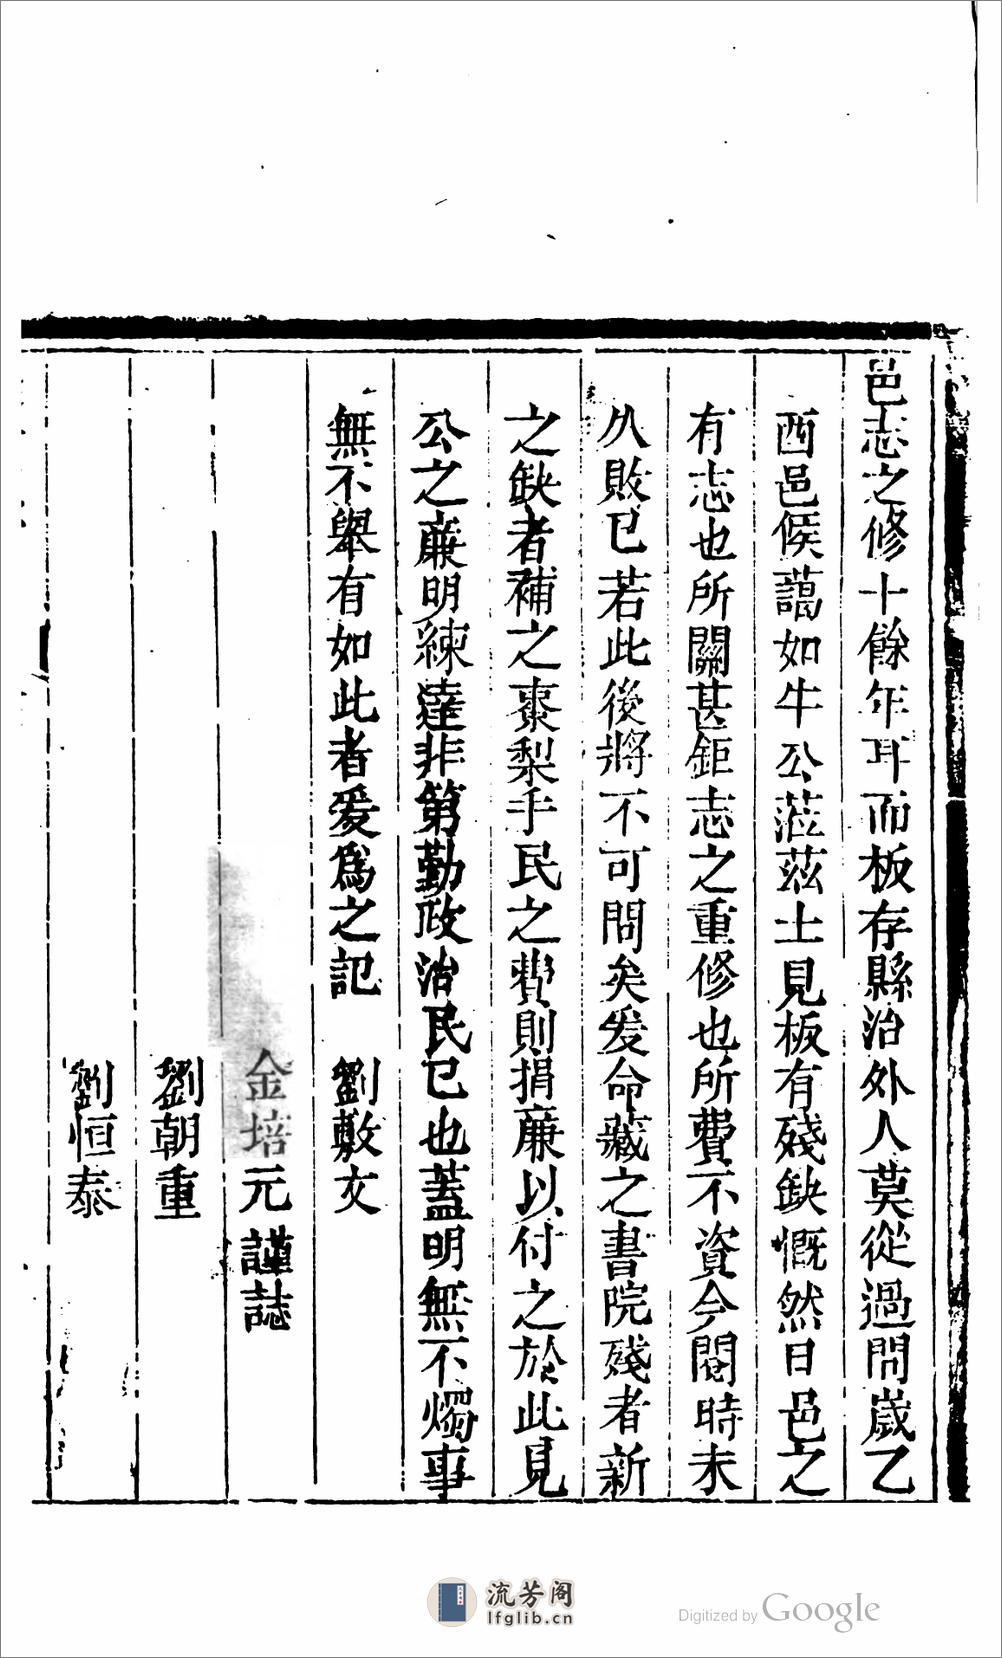 邑志之修十餘年耳而板存縣治外人莫從過問歲乙
酉邑侯藹如牛公蒞茲土見板有殘缺慨然曰邑之
有志也所關甚鉅志之重修也所費不資今閱時未
久敗已若此後將不可問矣爰命藏之書院殘者新
之缺者補之棗梨手民之費則捐廉以付之於此見
公之廉明練達非第勤政治民已也蓋明無不燭事
無不舉有如此者爰爲之記
劉敷文
金培元謹誌
劉朝重
劉恒泰
流芳阁
lfglib.cn
Digitized by Google